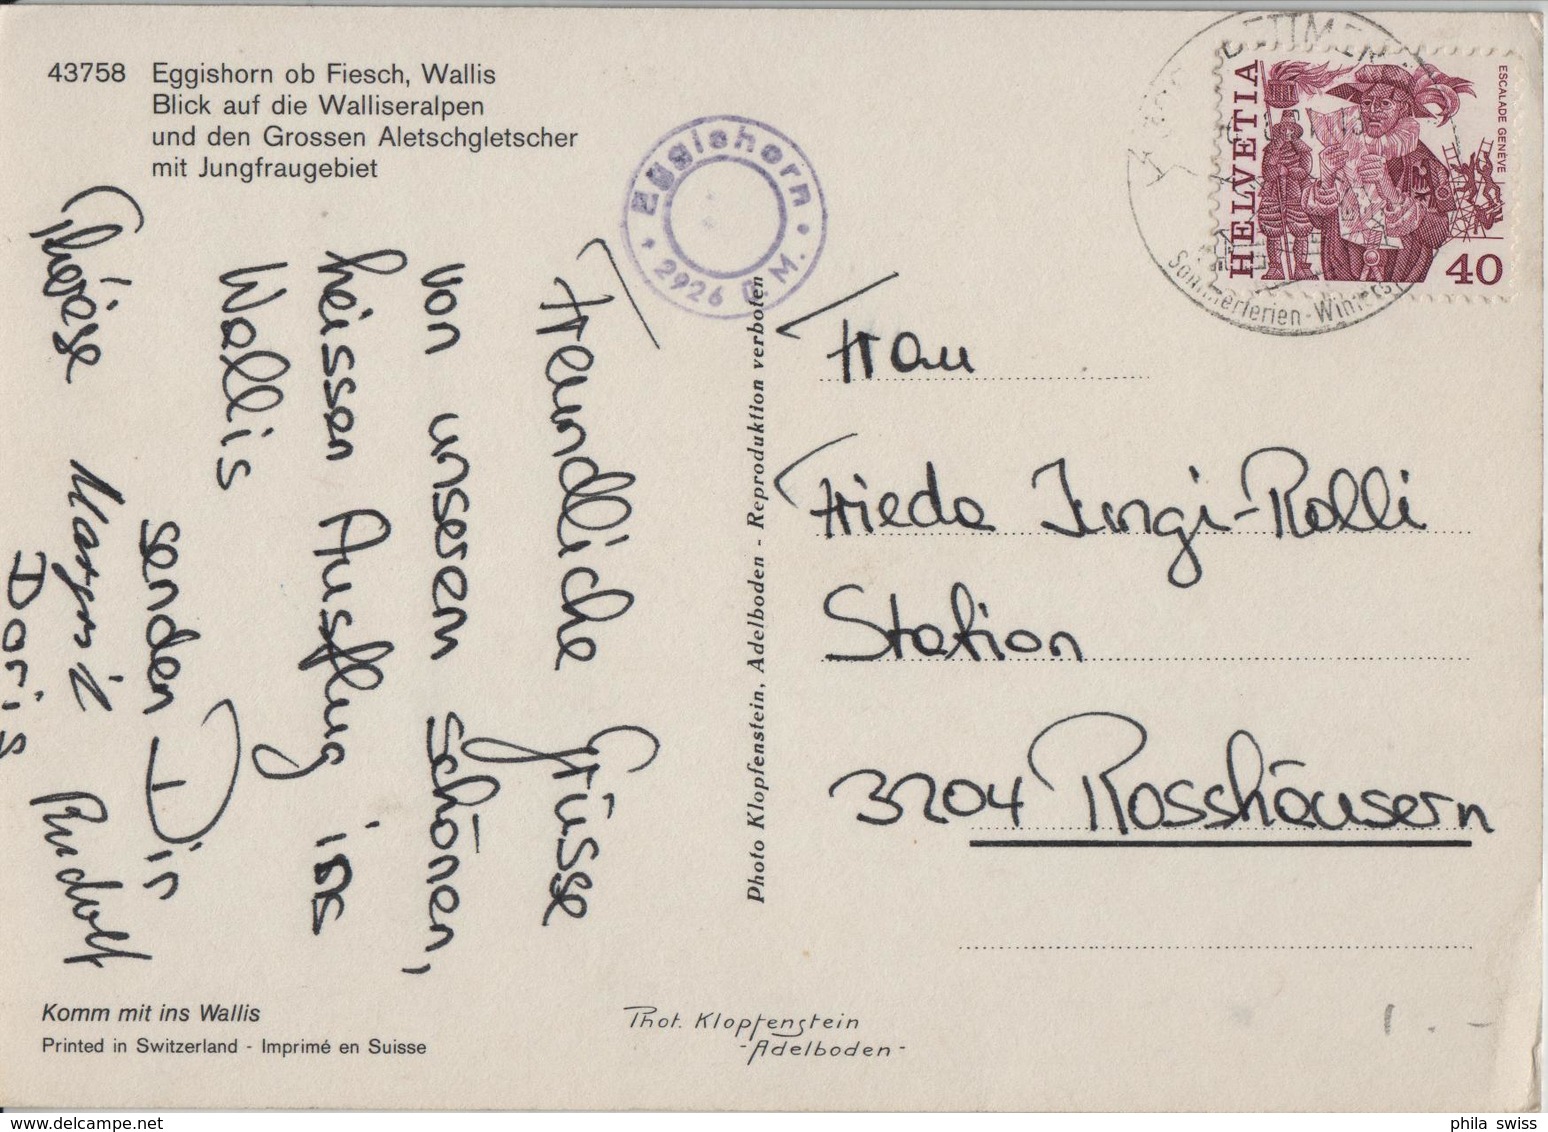 43758 Eggishorn ob Fiesch, Wallis
Blick auf die Walliseralpen
und den Grossen Aletschgletscher
mit Jungfraugebiet
Eggishorn
2926 ü. M.
HELVETIA
ESCALADE GENÈVE
40
Sommerferien - Winters
Freundliche Grüsse
von unserem schönen,
heissen Ausflug ins
Wallis
senden Dir
Thérèse Margrit Rudolf
Doris
Photo Klopfenstein, Adelboden - Reproduktion verboten
Frau
Frieda Jungi-Rolli
Station
3204 Rosshäusern
Komm mit ins Wallis
Printed in Switzerland - Imprimé en Suisse
Phot. Klopfenstein
-Adelboden-
1.-
phila swiss
www.delcampe.net